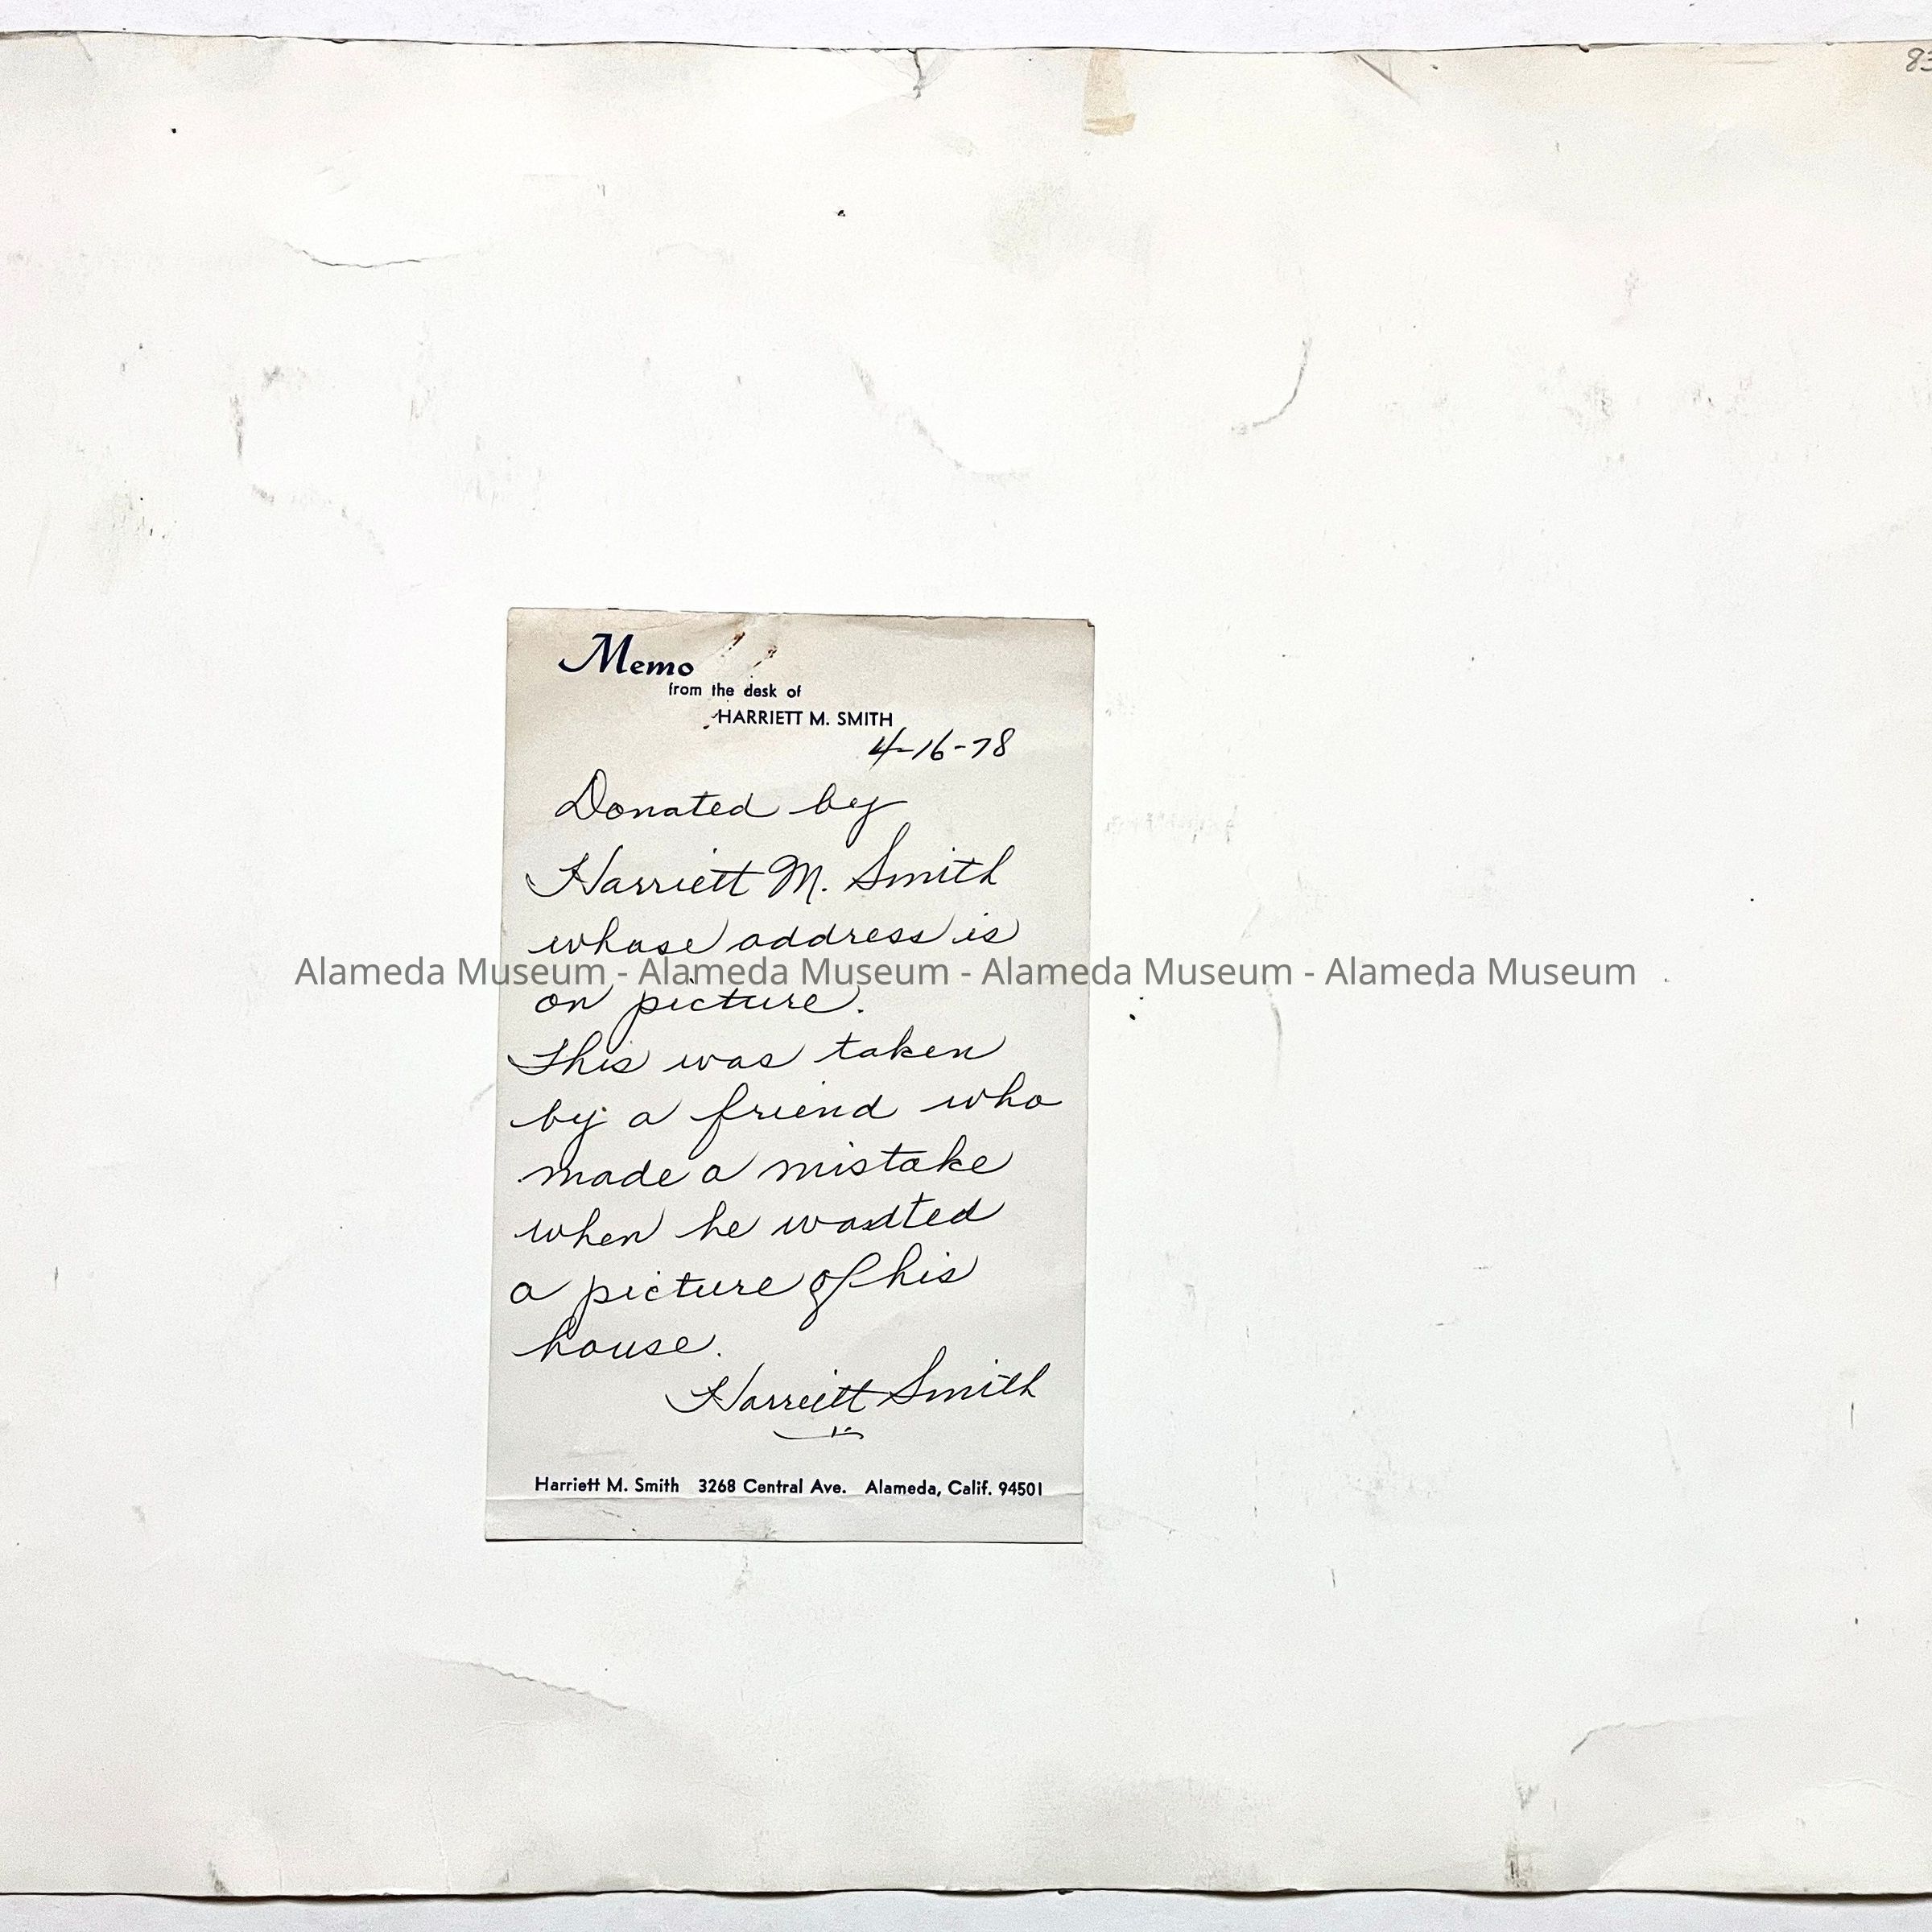 83
Memo
from the desk of
HARRIETT M. SMITH
4-16-78
Donated by
Harriett M. Smith
whose address is
Alameda Museum - Alameda Museum - Alameda Museum - Alameda Museum
on picture.
This was taken
by a friend who
made a mistake
when he wanted
a picture of his
house.
Harriett Smith
Harriett M. Smith 3268 Central Ave. Alameda, Calif. 94501